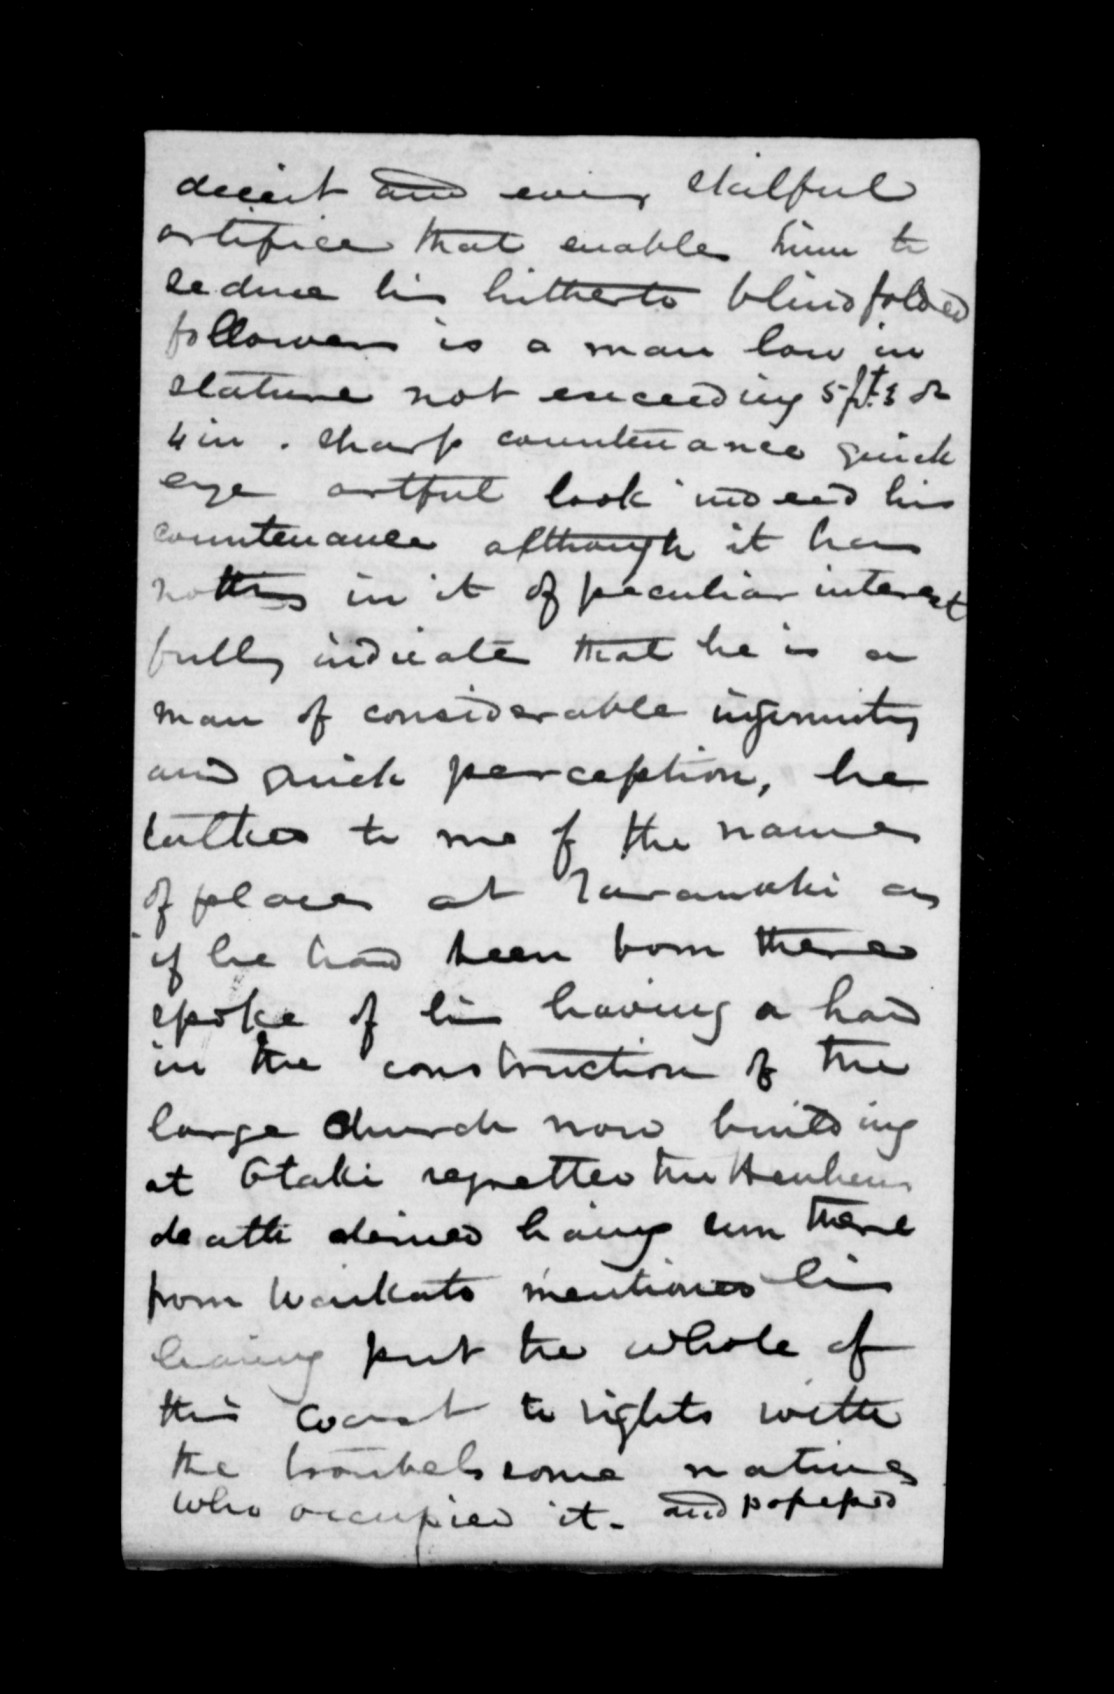 deceit and every skilful
artifice that enables him to
seduce his hitherto blindfolded
followers is a man low in
stature not exceeding 5 ft. 3 or
4 in. sharp countenance quick
eye artful look indeed his
countenance although it has
nothing in it of peculiar interest
fully indicates that he is a
man of considerable ingenuity
and quick perception, he
talked to me of the names
of places at Taranaki as
if he had been born there
spoke of his having a hand
in the construction of the
large Church now building
at Otaki regretted
death having there
from Waikato mentioned his
having put the whole of
this Coast to rights with
the troubelsome natives
who occupied it. and